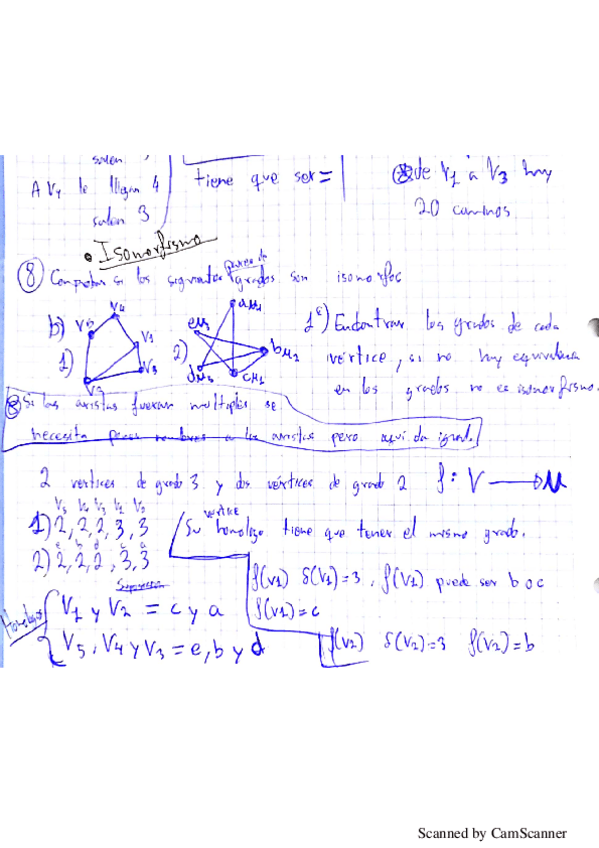 salen
A V4 le llegan 4
salen 3
tiene que ser =
de V1 a V3 hay
20 caminos
• Isomorfismo
⑧ Comprobar si los siguientes pares de grados son isomorfos
b)
1)
V4
V5
V1
V3
V2
2)
a
e
b
c
d
1º) Encontrar los grados de cada
vértice, si no hay equivalencia
en los grados no es isomorfismo.
⑧ Si las aristas fueran multiples se
necesita a las aristas pero aquí da igual.
2 vertices de grado 3 y dos vértices de grado 2 f: V → U
1) 2, 2, 2, 3, 3
2) 2, 2, 2, 3, 3
Su vertice homologo tiene que tener el mismo grado.
f(V1) δ(V1)=3, f(V1) puede ser b o c
f(V1)=c
f(V2) δ(V2)=3 f(V2)=b
V1 y V2 = c y a
V5, V4 y V3 = e, b y d
Scanned by CamScanner